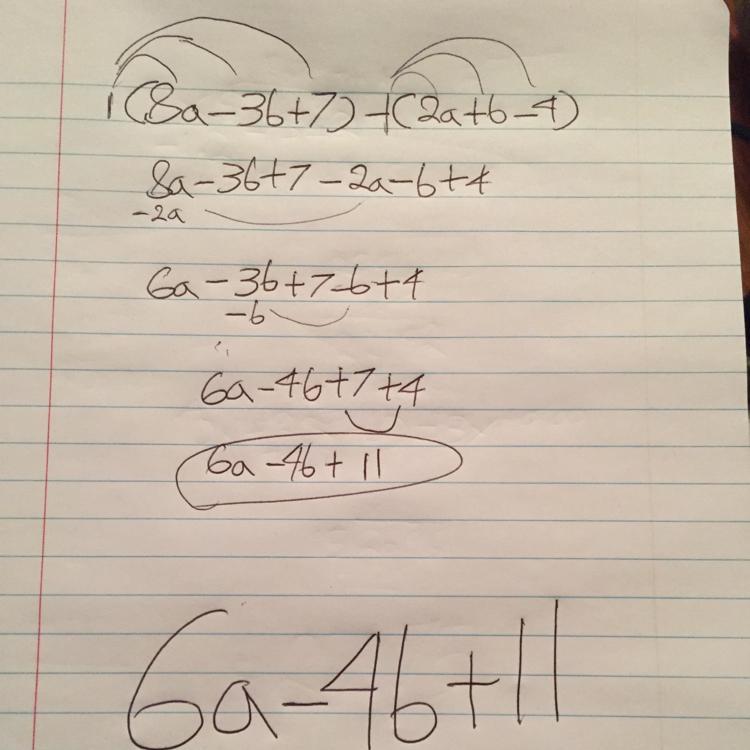 1(8a-3b+7)-1(2a+b-4)
8a-3b+7-2a-b+4
-2a
6a-3b+7-b+4
-b
6a-4b+7+4
6a-4b+11
6a-4b+11